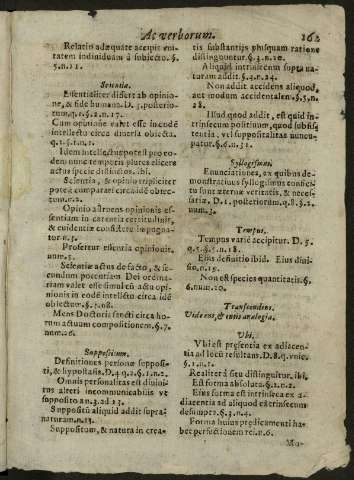 Ac verborum. 162
Relatio adæquate accipit unitatem
individuam à subiecto. §.
5. n. 11.
Scientia.
Essentialiter differt ab opinione,
& fide humana. D. 3. posteriorum.
q. 1. §. 2. n. 17.
Cum opinione valet esse in eodē
intellectu circa diversa obiecta.
q. 1. §. 1. n. 1.
Idem intellectus potest pro eodem
nunc temporis plures elicere
actus specie distinctos. ibi.
Scientia, & opinio tripliciter
potest comparari circa idē obiectum.
n. 2.
Opinio astruens opinionis essentiam
in carentia certitudinis,
& euidentiæ consistere impugnatur.
n. 3.
Profertur essentia opinionis.
num. 5.
Scientiæ actus de facto, & secundum
potentiam Dei ordinariam
valet esse simul cū actu opinionis
in eodē intellectu circa idē
obiectum. §. 3. n. 68.
Mens Doctoris sancti circa horum
actuum compositionem. §. 7.
num. 6.
Suppositum.
Definitiones personæ suppositi,
& hypostasis. D. 4. q. 2. §. 1. n. 2.
Omnis personalitas est divinitus
alteri incommunicabilis ut
supposito an. 3. ad 13.
Suppositū aliquid addit supra
naturam. n. 13.
Suppositum, & natura in creatis
substantijs plusquam ratione
distinguuntur. §. 3. n. 10.
Aliquid intrinsecum supra naturam
addit. §. 4. n. 24.
Non addit accidens aliquod,
aut modum accidentalem. §. 5. n.
28.
Illud quod addit, est quid intrinsecum
positivum, quod subsistentia,
vel suppositalitas nuncupatur.
§. 6. n. 31.
Syllogismus.
Enunciationes, ex quibus demonstrativus
syllogismus conficitur
sunt æternæ veritatis, & necessariæ.
D. 1. posteriorum. q. 8. §. 2.
num. 3.
Tempus.
Tempus variè accipitur. D. 5.
q. 5. §. 5. n. 18.
Eius definitio ibid. Eius divisio.
num. 15.
Non est species quantitatis. §.
6. num. 10.
Transcendens.
Vide ens, & entis analogia.
Vbi.
Vbi est præsentia ex adiacentia
ad locū resultans. D. 8. q. unic.
§. 1. n. 1.
Realiter à situ distinguitur. ibi.
Est forma absoluta. §. 1. n. 2.
Eius forma est intrinseca ex adiacentia
ad aliquod extrinsecum
desumpta. §. 3. n. 4.
Forma huius prædicamenti habet
perfectionem rei. n. 6.
Mo-